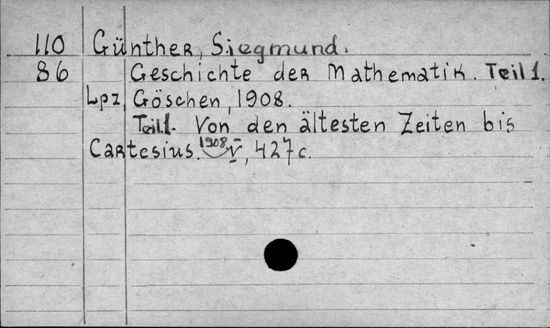 110 Günther, Siegmund.
86 Geschichte der Mathematik. Teil 1.
Lpz, Göschen, 1908.
Teil 1. Von den ältesten Zeiten bis
Cartesius. 1908. V, 427 c.